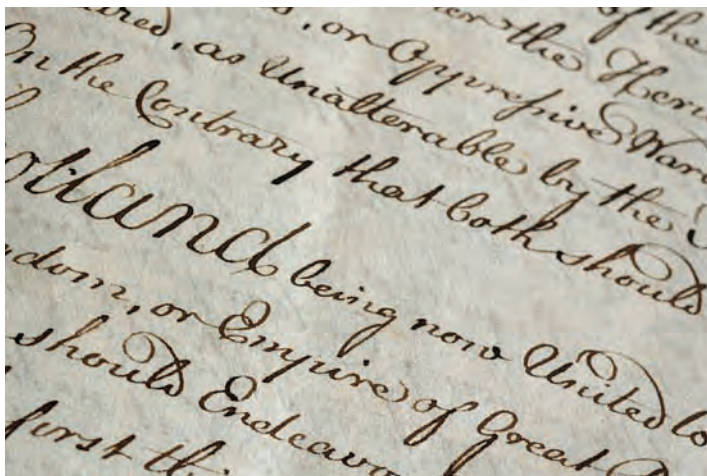 of the
the Heri
, or Oppressive Ward
ired, as Unalterable by the
On the Contrary that both should
otland being now United to
dom, or Empire of Great
should Endeavou
first thi